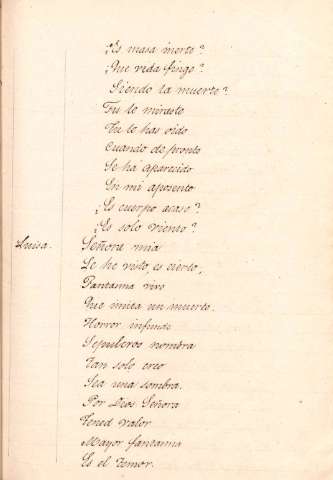 ¿Es masa inerte?
¿Que vida finge?
Siendo la muerte?
Tu lo miraste
Tu le has oido
Cuando de pronto
Se ha aparecido
En mi aposento
¿Es cuerpo acaso?
¿Es solo viento?
Luisa. Señora mia
Le he visto, es cierto,
Fantasma vivo
Que imita un muerto.
Horror infunde
Sepulcros nombra
Tan solo creo
Sea una sombra.
Por Dios Señora
Tened valor
Mayor fantasma
Es el temor.